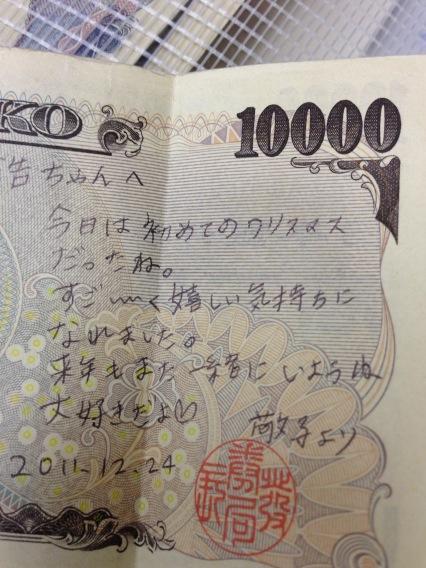 KO
10000
告ちゃんへ
今日は初めてのクリスマス
だったね。
すご〜〜く嬉しい気持ちに
なれました。
来年もまた一緒にいようね
大好きだよ♡
敬子より
2011.12.24
発券局長